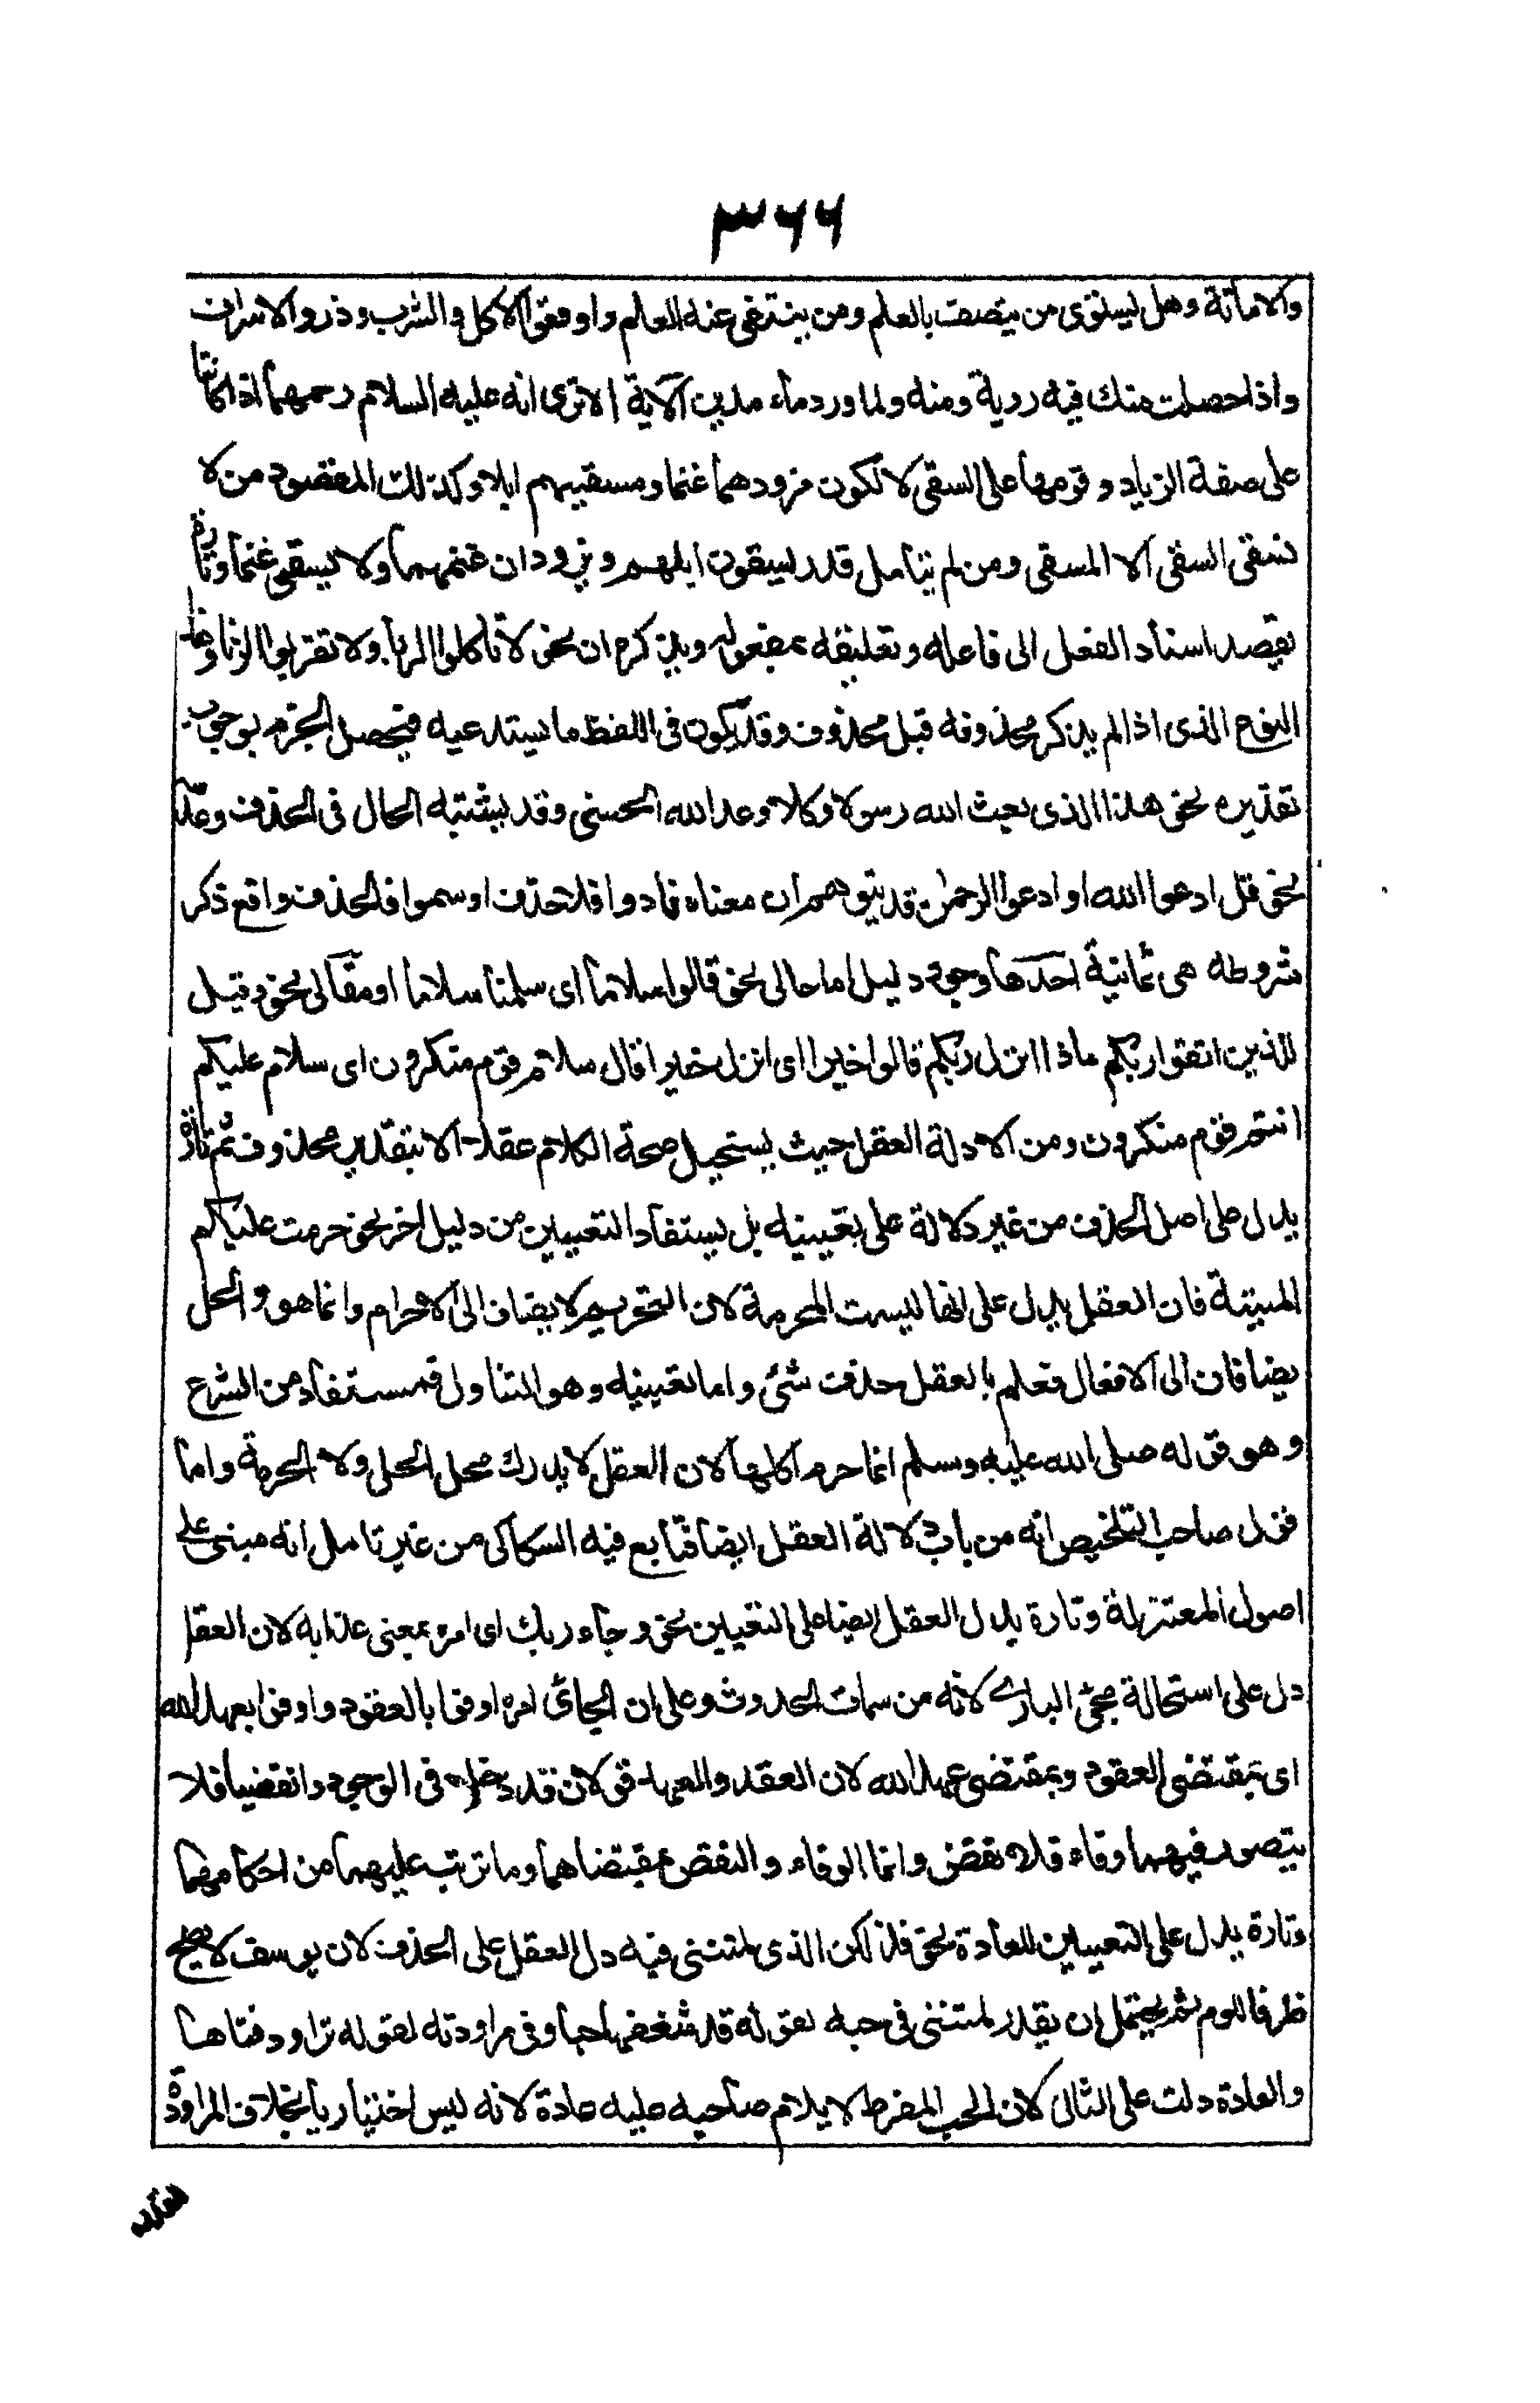 ٣٦٦
والاماتة وهل يستوى من يتصف بالعلم ومن ينتفى عنه العلم واوقعوا الاكل والشرب وذروا الاسراف
واذا حصلت منك فيه روية ومنه ولما ورد ماء مدين الاية الا ترى انه عليه السلام رحمهما اذ كانتا
على صفة الزياد وقومهما على السقى لا لكون مزودهما غنما ومسقيهم ابلا وكذلك المقصود من لا
نسقى السقى لا المسقى ومن لم يتأمل قدر يسقون ابلهم وتزودان غنمهما ولا نسقى غنما وتارة
يقصد اسناد الفعل الى فاعله وتعليقه بمفعوله ويذكران نحو لا تأكلوا الربا ولا تقربوا الزنا وهذا
النوع الذى اذا لم يذكر محذوفه قيل محذوف وقد يكون فى اللفظ ما يستدعيه فيحصل الجزم بوجوب
تقديره نحو هذا الذى بعث الله رسولا وكلا وعد الله الحسنى وقد يشتبه الحال فى الحذف وعدمه
نحو قل ادعوا الله او ادعوا الرحمن قد يتوهم ان معناه نادوا فلا حذف او سموا فالحذف واقع ذكر
شروطه هى ثمانية احدها وجود دليل اما حالى نحو قالوا سلاما اى سلمنا سلاما او مقالى نحو وقيل
للذين اتقوا ربكم ماذا انزل ربكم قالوا خيرا اى انزل خيرا قال سلام قوم منكرون اى سلام عليكم
انتم قوم منكرون ومن الادلة العقل حيث يستحيل صحة الكلام عقلا الا بتقدير محذوف ثم تارة
يدل على اصل الحذف من غير دلالة على تعيينه بل يستفاد التعيين من دليل اخر نحو حرمت عليكم
الميتة فان العقل يدل على انها ليست المحرمة لان التحريم لا يضاف الى الاجرام وانما هو والحل
يضافان الى الافعال فعلم بالعقل حذف شئ واما تعيينه وهو التناول فمستفاد من الشرع
وهو قوله صلى الله عليه وسلم انما حرم اكلها لان العقل لا يدرك محل الحل ولا الحرمة واما
قول صاحب التلخيص انه من باب دلالة العقل ايضا فتابع فيه السكاكى من غير تامل انه مبنى على
اصول المعتزلة وتارة يدل العقل ايضا على التعيين نحو وجاء ربك اى امره بمعنى عذابه لان العقل
دل على استحالة مجئ البارى لانه من سمات الحدوث وعلى ان الجائى امره اوفوا بالعقود واوفوا بعهد الله
اى بمقتضى العقود وبمقتضى عهد الله لان العقد والعهد قولان قد دخلا فى الوجود وانقضيا فلا
يتصور فيهما وفاء ولا نقض وانما الوفاء والنقض بمقتضاهما وما ترتب عليهما من احكامهما
وتارة يدل على التعيين العادة نحو فذلكن الذى لمتننى فيه دل العقل على الحذف لان يوسف لا يصح
ظرفا للوم ثم يحتمل ان يقدر لمتننى فى حبه لقوله قد شغفها حبا وفى مراودته لقوله تراود فتاها
والعادة دلت على الثانى لان الحب المفرط لا يلام صاحبه عليه عادة لانه ليس اختياريا بخلاف المراودة